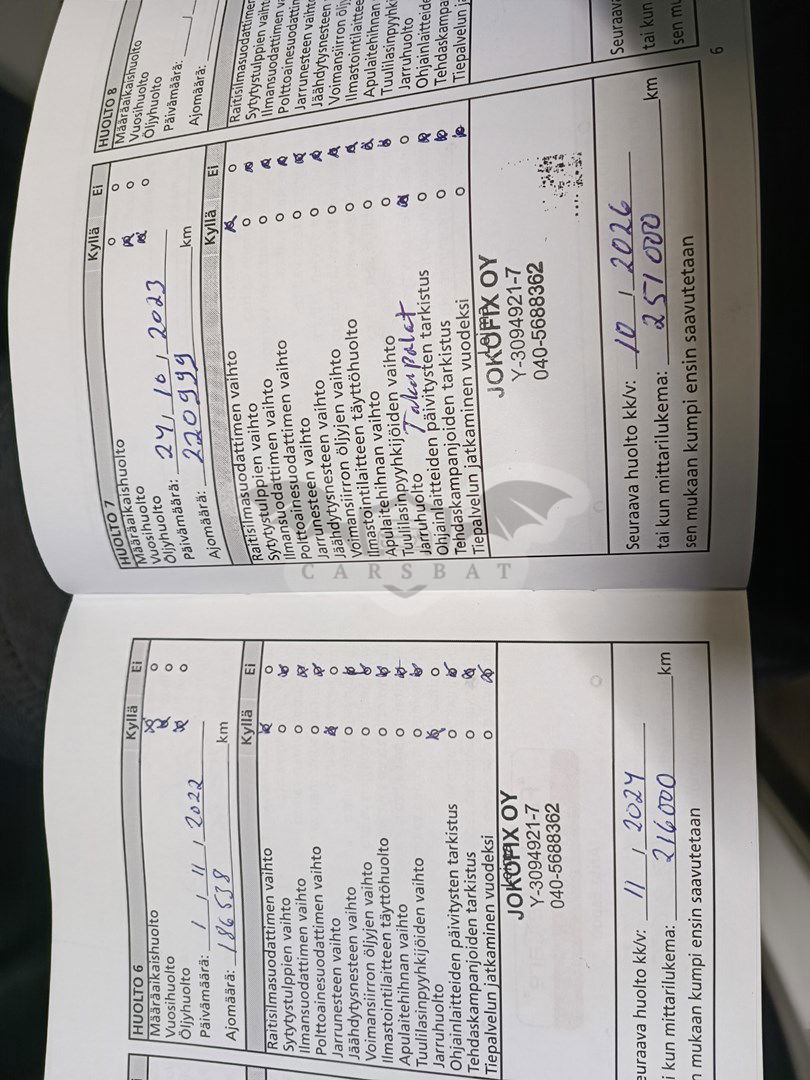 HUOLTO 6
Kyllä Ei
Määräaikaishuolto
Vuosihuolto
Öljyhuolto
Päivämäärä: 1 / 11 / 2022
Ajomäärä: 186538 km
Kyllä Ei
Raitisilmasuodattimen vaihto
Sytytystulppien vaihto
Ilmansuodattimen vaihto
Polttoainesuodattimen vaihto
Jarrunesteen vaihto
Jäähdytysnesteen vaihto
Voimansiirron öljyjen vaihto
Ilmastointilaitteen täyttöhuolto
Apulaitehihnan vaihto
Tuulilasinpyyhkijöiden vaihto
Jarruhuolto
Ohjainlaitteiden päivitysten tarkistus
Tehdaskampanjoiden tarkistus
Tiepalvelun jatkaminen vuodeksi
JOKOFIX OY
Y-3094921-7
040-5688362
euraava huolto kk/v: 11 / 2024
i kun mittarilukema: 216000 km
n mukaan kumpi ensin saavutetaan
HUOLTO 7
Kyllä Ei
Määräaikaishuolto
Vuosihuolto
Öljyhuolto
Päivämäärä: 24 / 10 / 2023
Ajomäärä: 220999 km
Kyllä Ei
Raitisilmasuodattimen vaihto
Sytytystulppien vaihto
Ilmansuodattimen vaihto
Polttoainesuodattimen vaihto
Jarrunesteen vaihto
Jäähdytysnesteen vaihto
Voimansiirron öljyjen vaihto
Ilmastointilaitteen täyttöhuolto
Apulaitehihnan vaihto
Tuulilasinpyyhkijöiden vaihto
Jarruhuolto Takapalat
Ohjainlaitteiden päivitysten tarkistus
Tehdaskampanjoiden tarkistus
Tiepalvelun jatkaminen vuodeksi
JOKOFIX OY
Y-3094921-7
040-5688362
Seuraava huolto kk/v: 10 / 2026
tai kun mittarilukema: 251000 km
sen mukaan kumpi ensin saavutetaan
6
HUOLTO 8
Määräaikaishuolto
Vuosihuolto
Öljyhuolto
Päivämäärä: /
Ajomäärä:
Raitisilmasuodattimen
Sytytystulppien vaiht
Ilmansuodattimen va
Polttoainesuodattim
Jarrunesteen vaihto
Jäähdytysnesteen
Voimansiirron öljy
Ilmastointilaittee
Apulaitehihnan
Tuulilasinpyyhki
Jarruhuolto
Ohjainlaitteide
Tehdaskampa
Tiepalvelun ja
Seuraava
tai kun
sen mu
CARSBAT